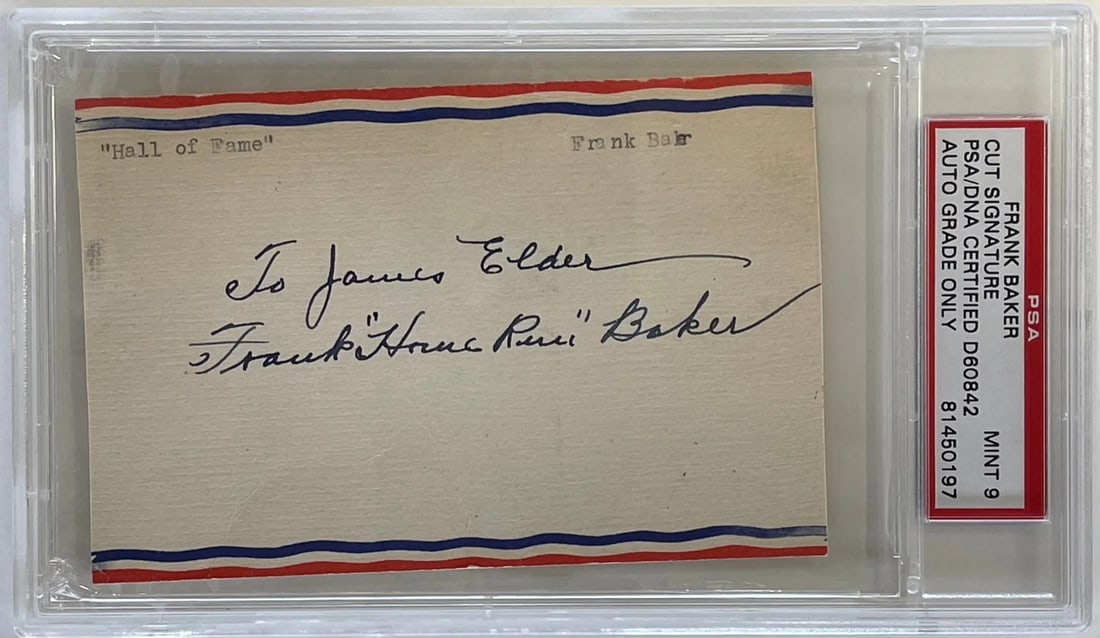 "Hall of Fame"
Frank Baker
To James Elder
Frank "Home Run" Baker
PSA
FRANK BAKER
CUT SIGNATURE
PSA/DNA CERTIFIED D60842 MINT 9
AUTO GRADE ONLY 81450197